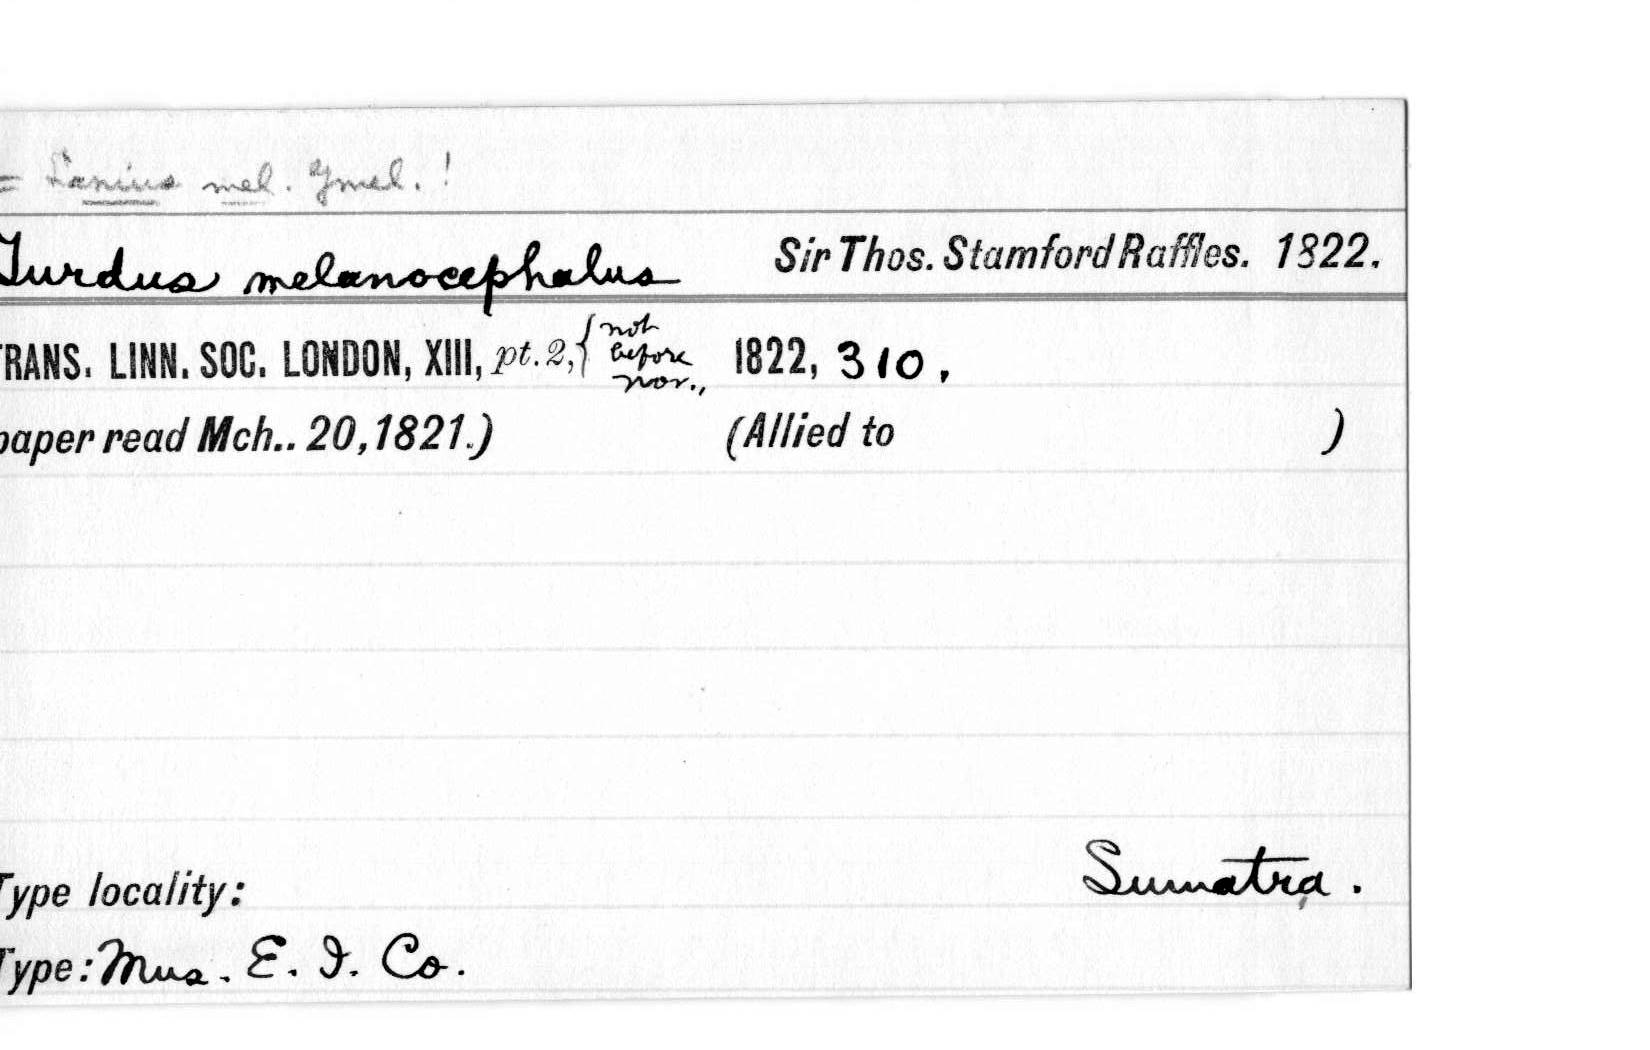 = Lanius mel. Gmel.!
Turdus melanocephalus Sir Thos. Stamford Raffles. 1822.
TRANS. LINN. SOC. LONDON, XIII, pt. 2, { not before Nov., 1822, 310.
paper read Mch.. 20, 1821.) (Allied to )
Type locality: Sumatra.
Type: Mus. E. I. Co.